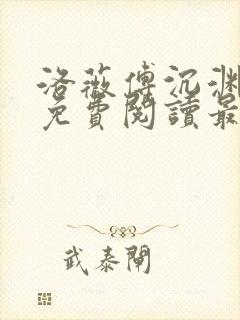 洛薇傅沉渊
免費閱讀最
武泰閘